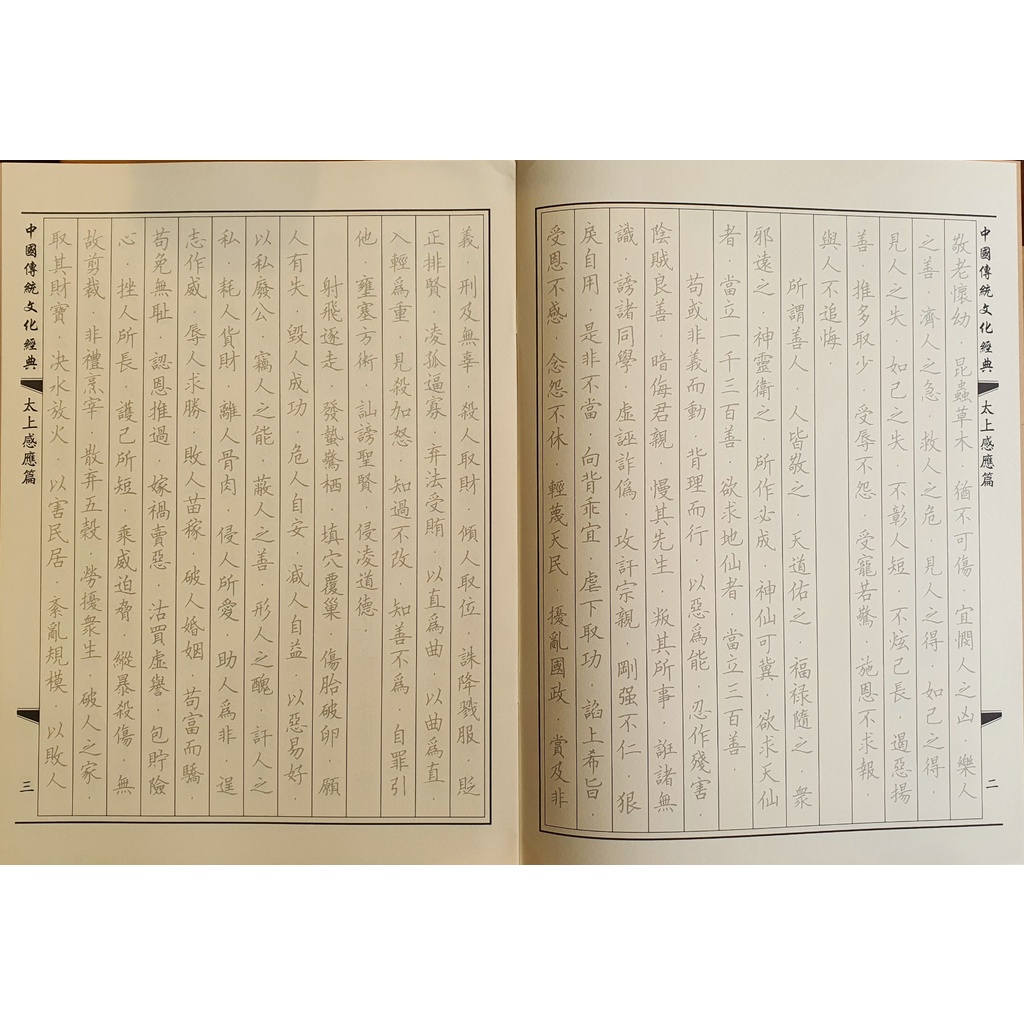 中國傳統文化經典
太上感應篇
二
敬老懷幼．昆蟲草木．猶不可傷．宜憫人之凶．樂人
之善．濟人之急．救人之危．見人之得．如己之得．
見人之失．如己之失．不彰人短．不炫己長．遏惡揚
善．推多取少．受辱不怨．受寵若驚．施恩不求報．
與人不追悔．
所謂善人．人皆敬之．天道佑之．福祿隨之．衆
邪遠之．神靈衛之．所作必成．神仙可冀．欲求天仙
者．當立一千三百善．欲求地仙者．當立三百善．
苟或非義而動．背理而行．以惡爲能．忍作殘害．
陰賊良善．暗侮君親．慢其先生．叛其所事．誑諸無
識．謗諸同學．虛誣詐僞．攻訐宗親．剛强不仁．狠
戾自用．是非不當．向背乖宜．虐下取功．諂上希旨．
受恩不感．念怨不休．輕蔑天民．擾亂國政．賞及非
義．刑及無辜．殺人取財．傾人取位．誅降戮服．貶
正排賢．凌孤逼寡．弃法受賄．以直爲曲．以曲爲直．
入輕爲重．見殺加怒．知過不改．知善不爲．自罪引
他．壅塞方術．訕謗聖賢．侵凌道德．
射飛逐走．發蟄驚栖．填穴覆巢．傷胎破卵．願
人有失．毀人成功．危人自安．减人自益．以惡易好．
以私廢公．竊人之能．蔽人之善．形人之醜．訐人之
私．耗人貨財．離人骨肉．侵人所愛．助人爲非．逞
志作威．辱人求勝．敗人苗稼．破人婚姻．苟富而驕．
苟免無耻．認恩推過．嫁禍賣惡．沽買虛譽．包貯險
心．挫人所長．護己所短．乘威迫脅．縱暴殺傷．無
故剪裁．非禮烹宰．散弃五穀．勞擾衆生．破人之家．
取其財寶．决水放火．以害民居．紊亂規模．以敗人
中國傳統文化經典
太上感應篇
三